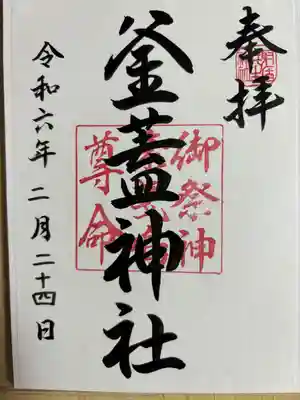 奉拝
釜蓋神社
御祭神
尊命
令和六年二月二十四日